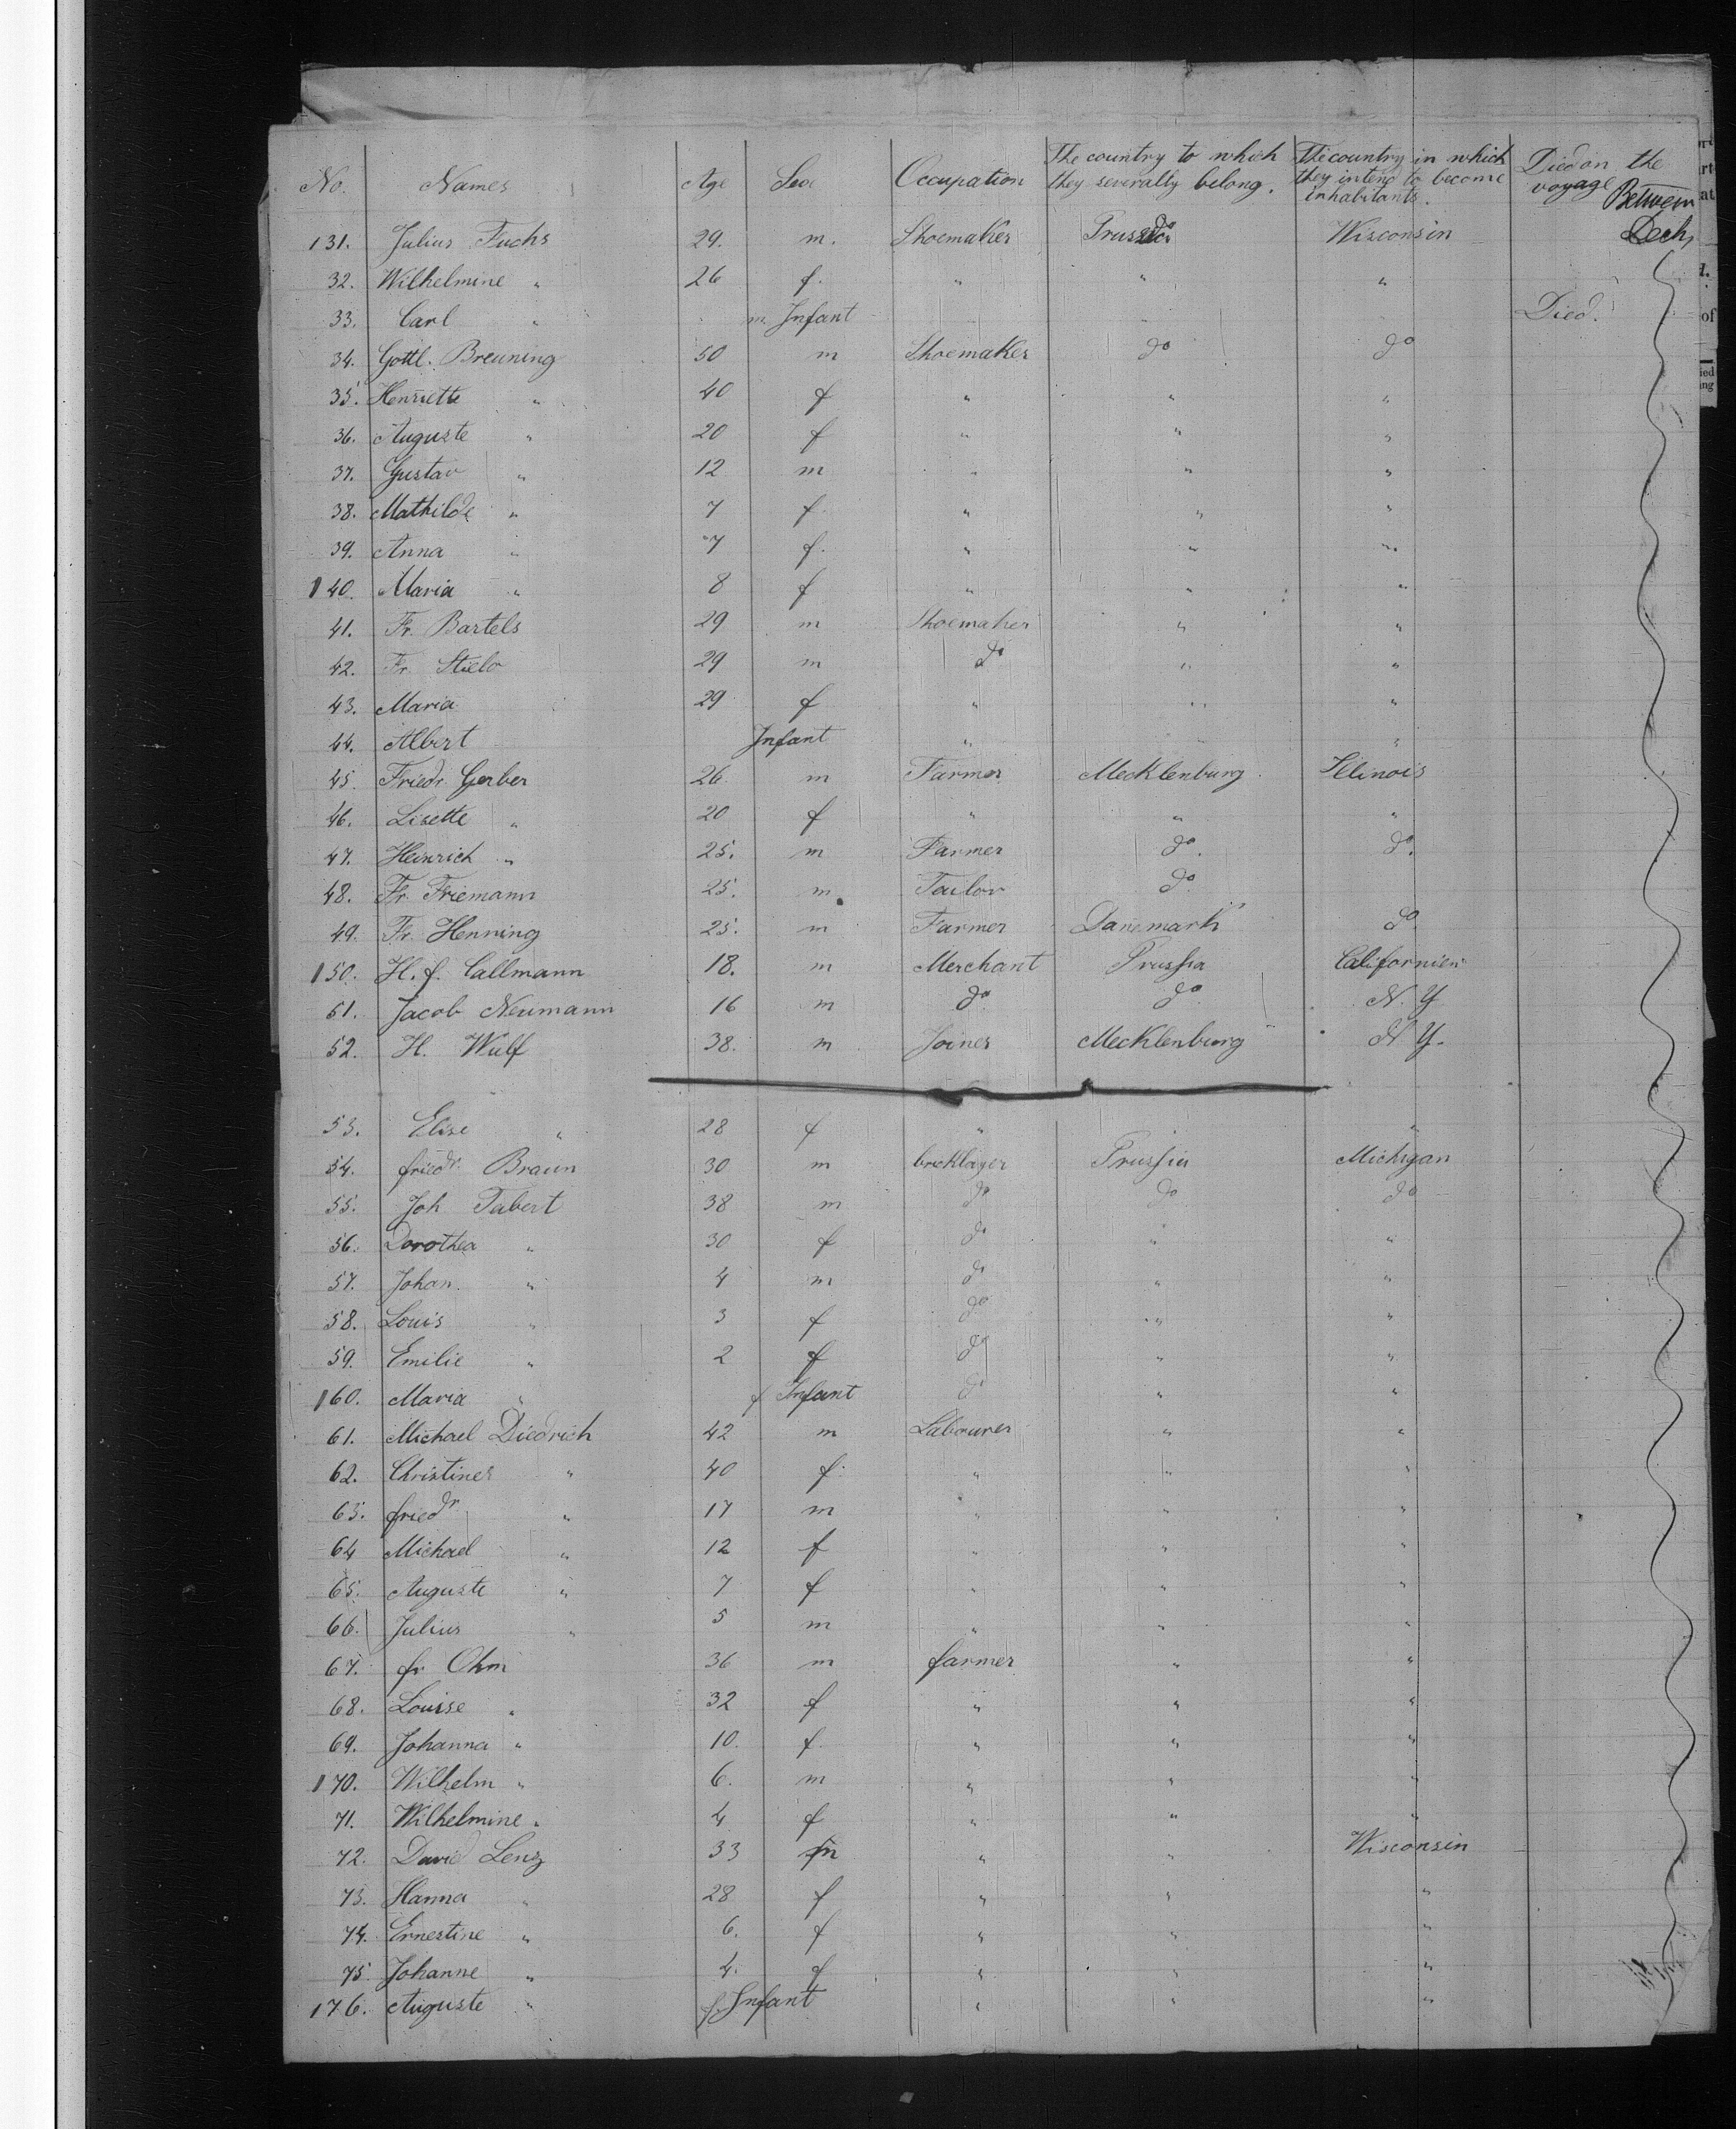 No. Names Age Sex Occupation The country to which they severally belong. The country in which they intend to become inhabitants. Died on the voyage Between Deck
131. Julius Fuchs 29. m. Shoemaker Prussia Wisconsin
32. Wilhelmine " 26 f. " " "
33. Carl " m Infant Died.
34. Gottl. Breuning 50 m Shoemaker do do
35. Henriette " 40 f " " "
36. Auguste " 20 f " " "
37. Gustav " 12 m " " "
38. Mathilde " 7 f " " "
39. Anna " 7 f. " " "
140. Maria " 8 f " " "
41. Fr. Bartels 29 m Shoemaker " "
42. Fr. 29 m do " "
43. Maria 29 f " " "
44. Albert Infant " " "
45. Friedr. Gerber 26. m Farmer Mecklenburg Illinois
46. Lisette " 20 f " " "
47. Heinrich " 25. m Farmer do. do.
48. Fr. Friemann 25. m Tailor do
49. Fr. Henning 25. m Farmer Danemark do
150. H. J. Callmann 18. m Merchant Prussia Californien
51. Jacob Neumann 16 m do do N. Y
52. H. Wulf 38. m Joiner Mecklenburg N Y.
53. Elise " 28 f " "
54. friedr. Braun 30 m bricklayer Prussia Michigan
55. Joh Tabert 38 m do do do
56. Dorothea " 30 f do " "
57. Johan " 4 m do " "
58. Louis " 3 f do " "
59. Emilie " 2 f do " "
160. Maria " f Infant do " "
61. Michael Diedrich 42 m Labourer " "
62. Christines " 40 f " " "
63. friedr " 17 m " " "
64 Michael " 12 f " " "
65. Auguste " 7 f " " "
66. Julius " 5 m " " "
67. fr Ohm 36 m farmer " "
68. Louise " 32 f " " "
69. Johanna " 10. f " " "
170. Wilhelm " 6. m " " "
71. Wilhelmine " 4 f " " "
72. David Lenz 33 m " " Wisconsin
73. Hanna " 28 f " " "
74. Ernestine " 6. f " " "
75. Johanne " 4. f " " "
176. Auguste " f. Infant " " "